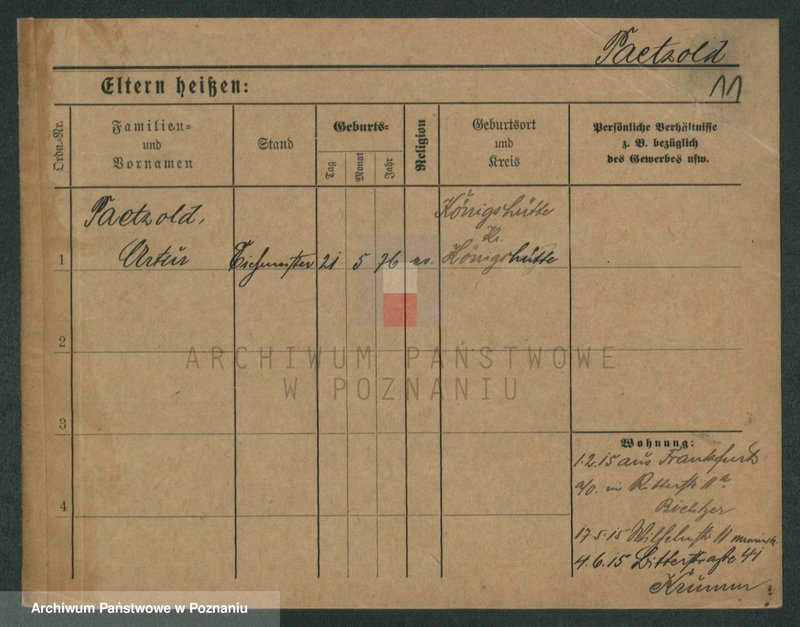 Paetzold
11
Eltern heißen:
Ordn.-Nr.
Familien-
und
Vornamen
Stand
Geburts-
Tag
Monat
Jahr
Religion
Geburtsort
und
Kreis
Persönliche Verhältnisse
z. B. bezüglich
des Gewerbes usw.
Paetzold,
Artur
1
21 5 76 ev.
Königshütte
Kr.
Königshütte
2
3
4
ARCHIWUM PAŃSTWOWE
W POZNANIU
Wohnung:
1.2.15 aus Frankfurt
a/O. in Ritterstr 11a
17.5.15 Wilhelmstr 11
4.6.15 Ritterstraße 41
Krumm
Archiwum Państwowe w Poznaniu